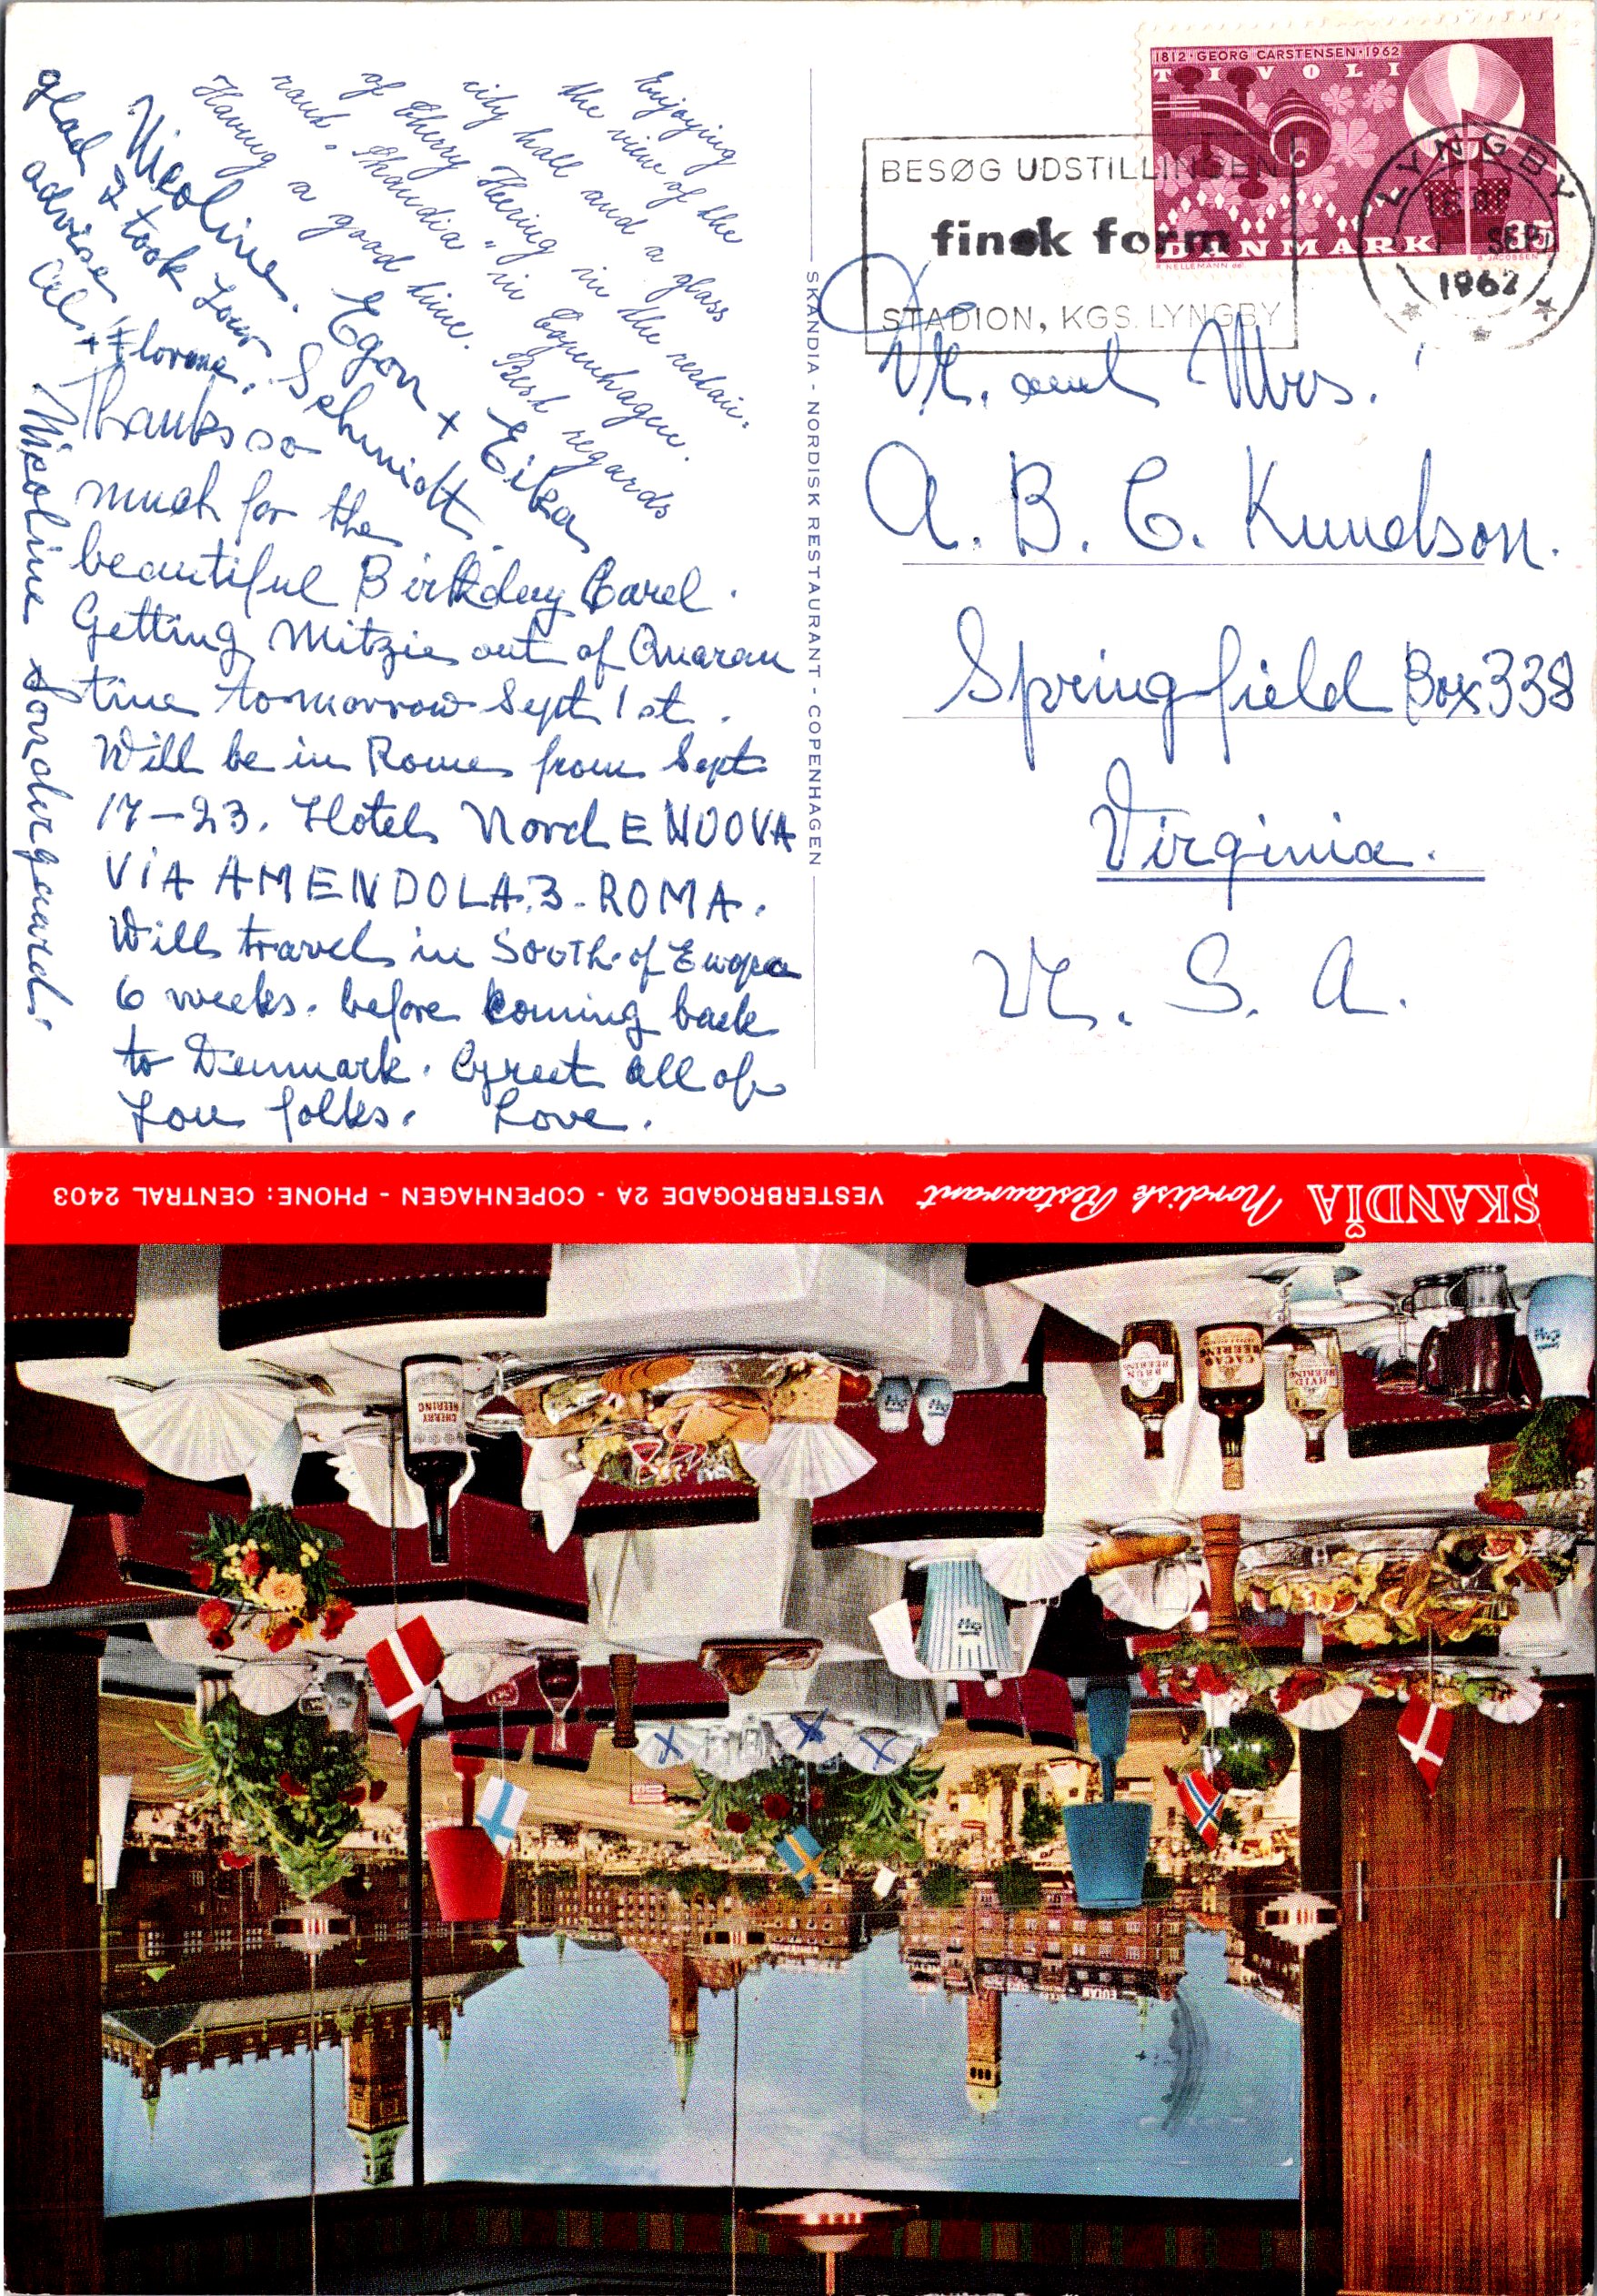 Enjoying
the view of the
city hall and a glass
of Cherry Heering in the restau-
rant "Skandia" in Copenhagen.
Having a good time. Best regards
Nicoline. Egon + Eika
Schmidt.
glad I took your
advise
Thanks so
much for the
beautiful Birthday Card.
Getting Mitzie out of Quaran
tine tomorrow Sept 1st.
Will be in Rome from Sept
17-23. Hotel Nord E NUOVA
VIA AMENDOLA.3-ROMA.
Will travel in South of Europa
6 weeks. before coming back
to Denmark. Greet all of
You folks. Love.
Nicoline Sondergaard.
SKANDIA - NORDISK RESTAURANT - COPENHAGEN
1812 · GEORG CARSTENSEN · 1962
TIVOLI
DANMARK 35
R. NELLEMANN del.
B. JACOBSEN
BESØG UDSTILLINGEN
finsk form
STADION, KGS. LYNGBY
LYNGBY
SEP.
1962
Mr. and Mrs.
A. B. C. Knudson.
Springfield Box 338
Virginia.
U. S. A.
SKANDIA Nordisk Restaurant VESTERBROGADE 2A - COPENHAGEN - PHONE: CENTRAL 2403
CHERRY
HEERING
BRUN
HEERING
CACAO
HEERING
HVID
HEERING